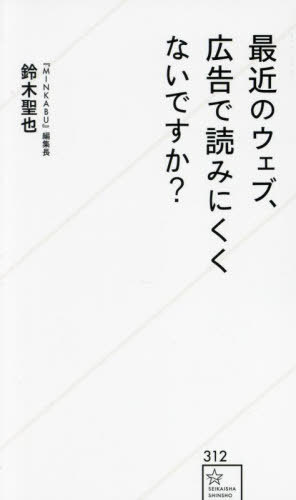 最近のウェブ、
広告で読みにくく
ないですか?
『MINKABU』編集長
鈴木聖也
312
SEIKAISHA
SHINSHO